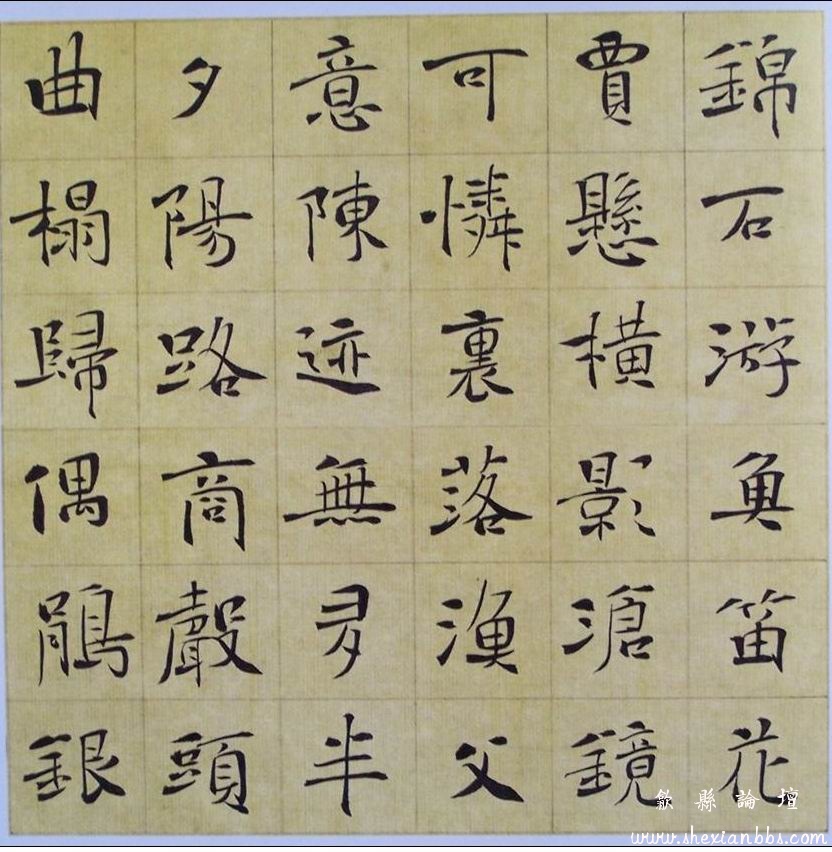 錦石游魚笛花
賈懸橫影滄鏡
可憐裏落漁父
意陳迹無半
夕陽路商聲頭
曲榻歸偶鵑銀
歙縣論壇
www.shexianbbs.com